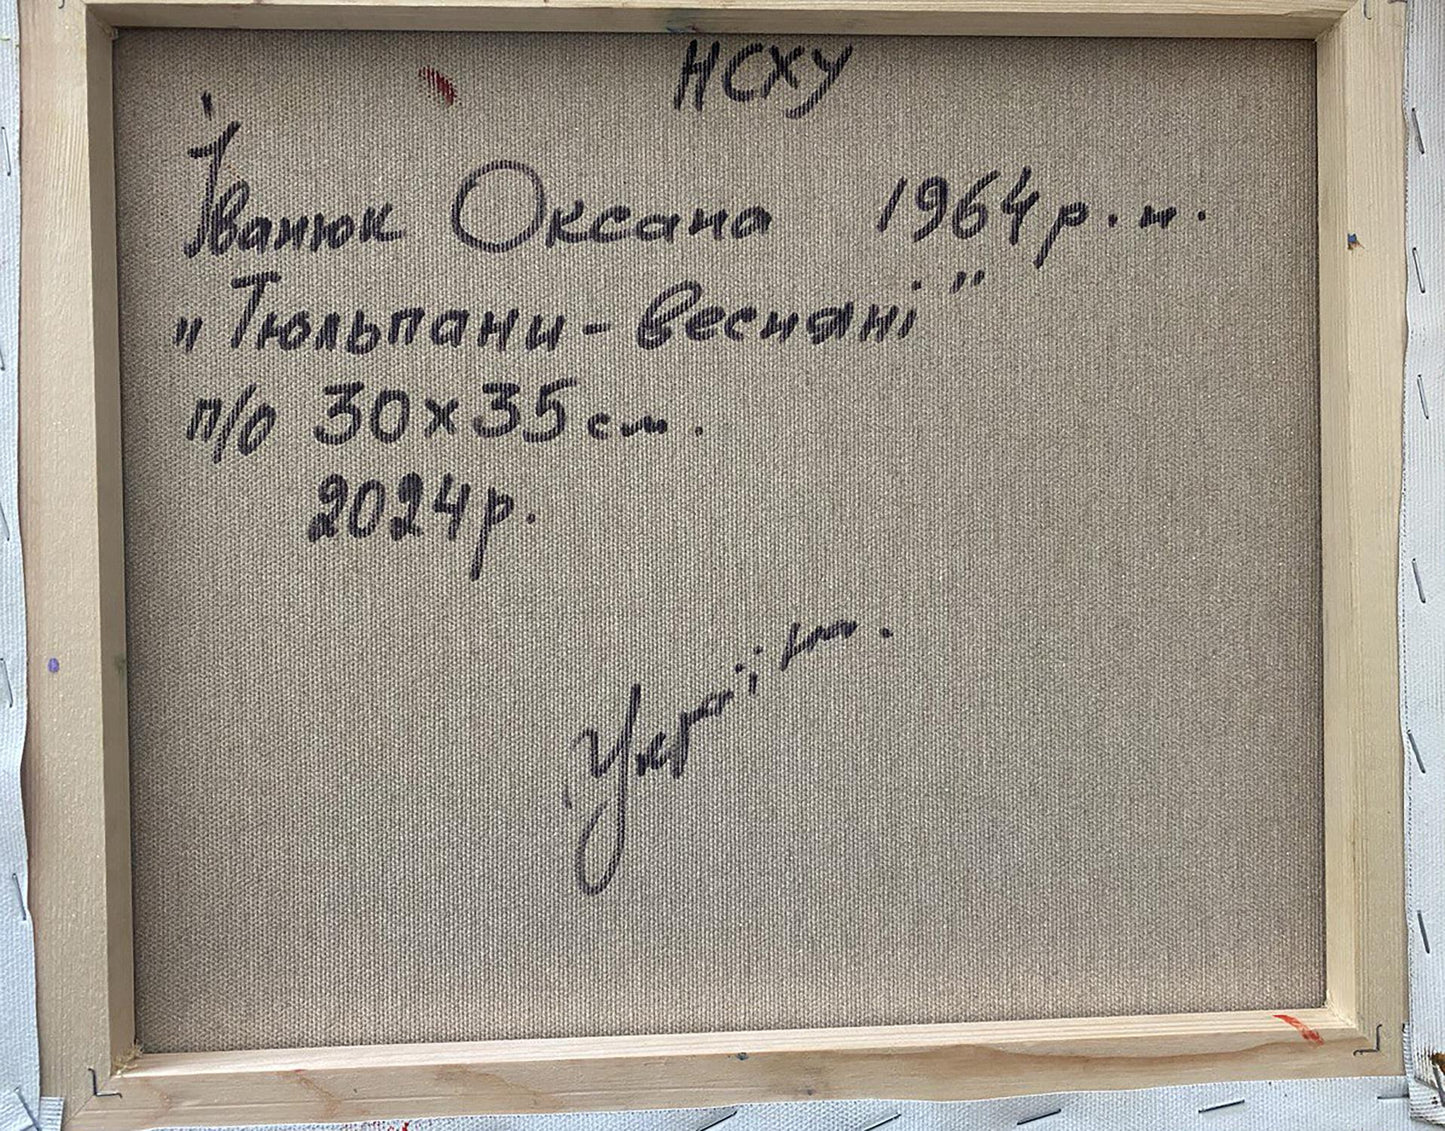 НСХУ
Іванюк Оксана 1964 р. н.
"Тюльпани - весняні"
п/о 30x35 см.
2024 р.
Україна.